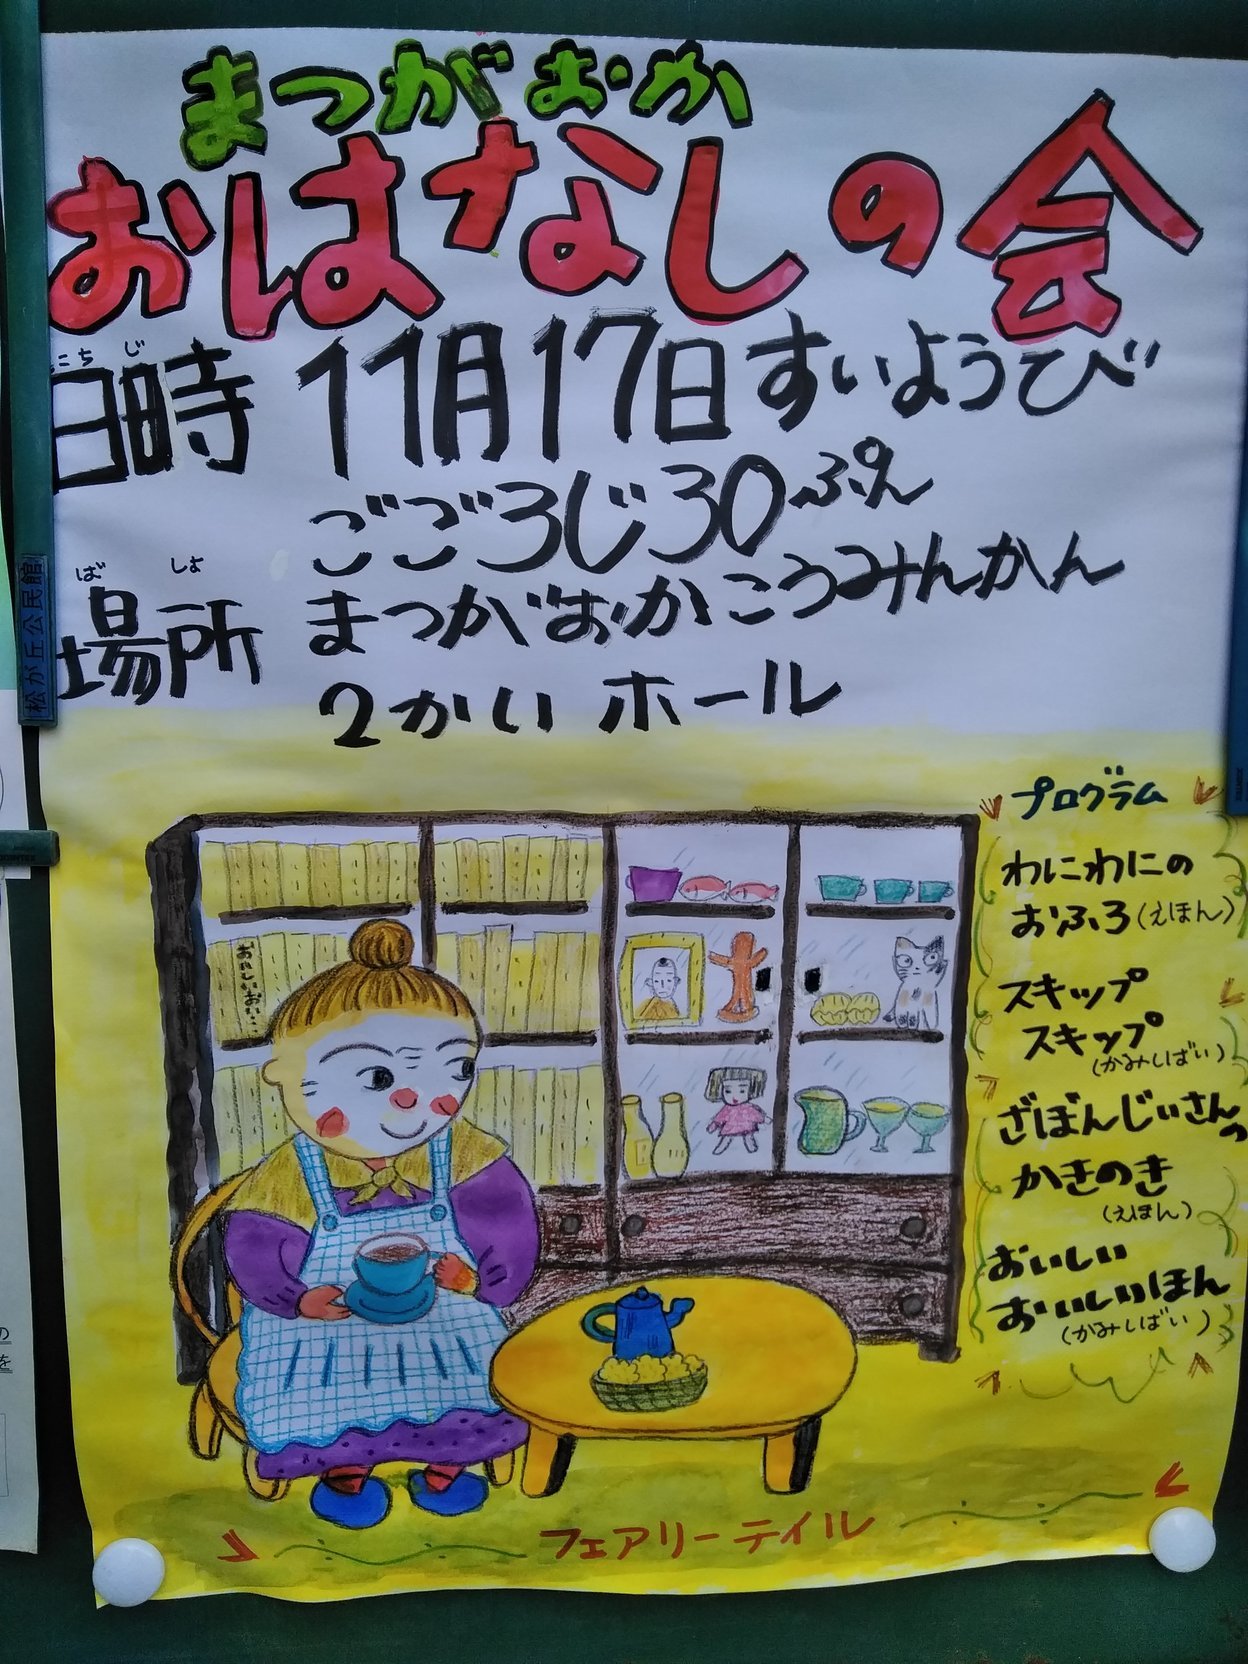 まつがおか
おはなしの会
にちじ
日時 11月17日すいようび
ごご3じ30ぷん
ばしょ
場所 まつがおかこうみんかん
2かい ホール
松が丘公民館
プログラム
わにわにの
おふろ(えほん)
スキップ
スキップ
(かみしばい)
ざぼんじいさんの
かきのき
(えほん)
おいしい
おいしいほん
(かみしばい)
おいしいおい…
フェアリーテイル
の
を